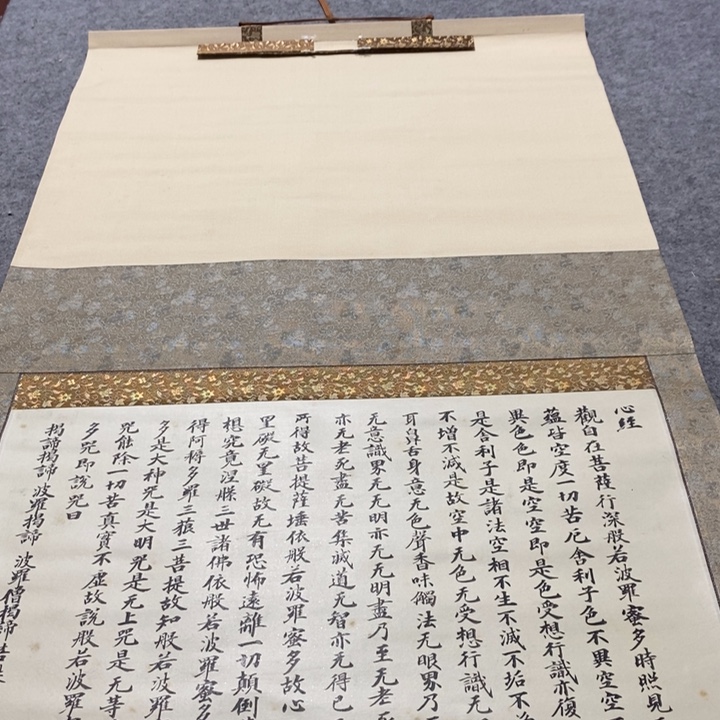 心经
觀自在菩薩行深般若波羅蜜多時照見
蘊皆空度一切苦厄舍利子色不異空空
異色色即是空空即是色受想行識亦復
是舍利子是諸法空相不生不滅不垢不
不增不滅是故空中无色无受想行識无
耳鼻舌身意无色聲香味觸法无眼界乃
无意識界无无明亦无无明盡乃至无老
亦无老死盡无苦集滅道无智亦无得已
所得故菩提薩埵依般若波羅蜜多故心
罣礙无罣礙故无有恐怖遠離一切顛倒
想究竟涅槃三世諸佛依般若波羅蜜多
得阿耨多羅三藐三菩提故知般若波羅
多是大神咒是大明咒是无上咒是无等
咒能除一切苦真實不虛故說般若波羅
多咒即說咒曰
揭諦揭諦 波羅揭諦 波羅僧揭諦